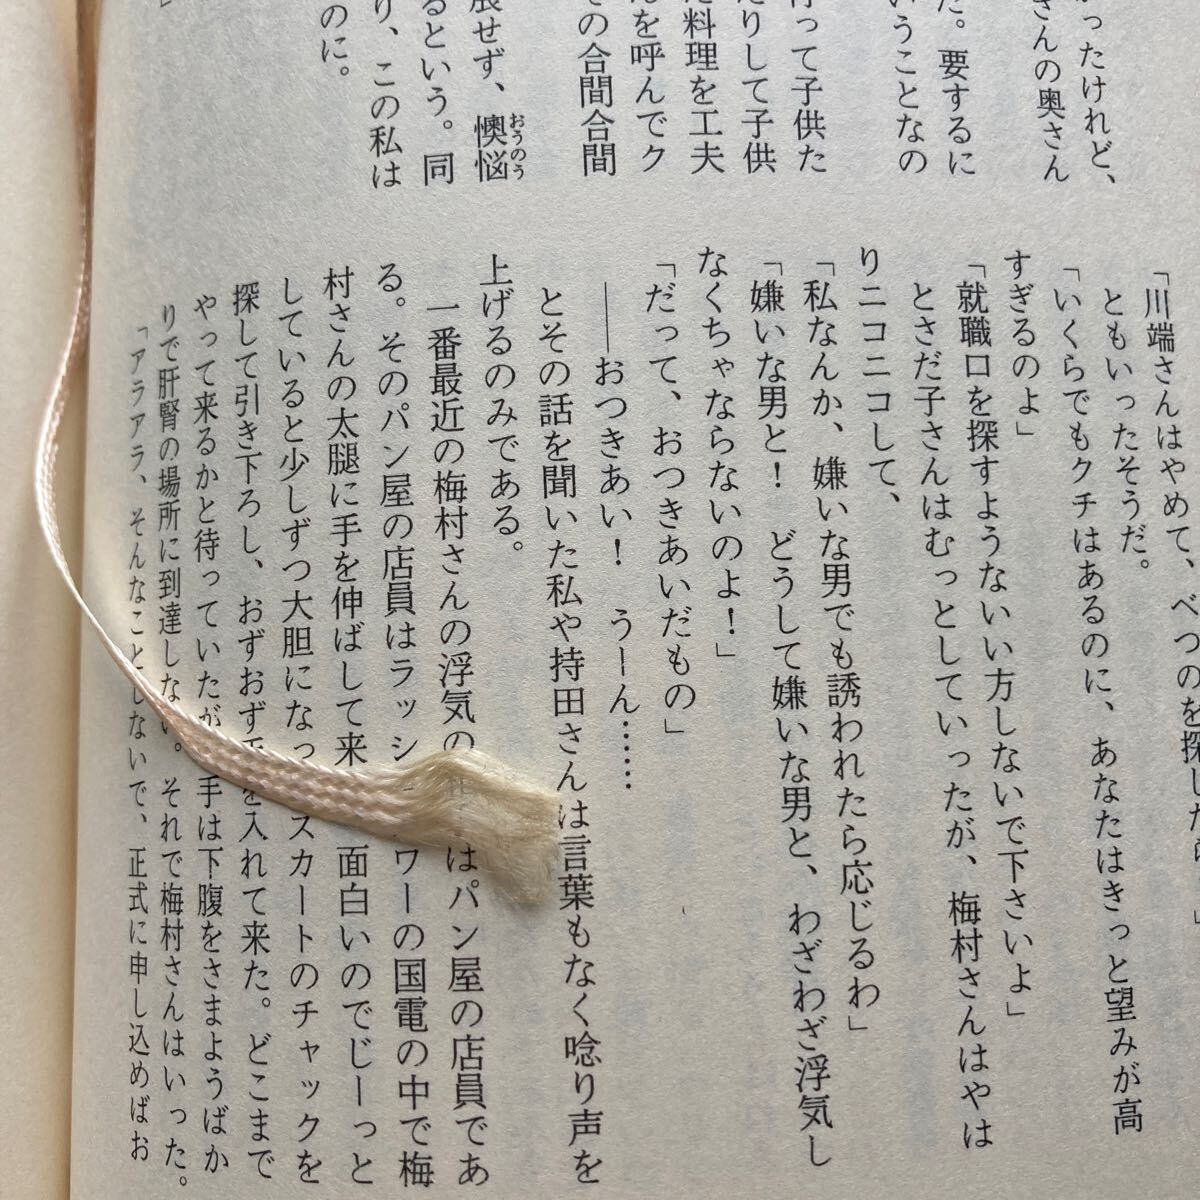 ったけれど、
さんの奥さん
た。要するに
いうことなの
って子供た
たりして子供
料理を工夫
を呼んでク
の合間合間
おうのう
展せず、懊悩
るという。同
り、この私は
のに。
」
「川端さんはやめて、べつのを探した
ともいったそうだ。
「いくらでもクチはあるのに、あなたはきっと望みが高
すぎるのよ」
「就職口を探すようないい方しないで下さいよ」
とさだ子さんはむっとしていったが、梅村さんはやは
りニコニコして、
「私なんか、嫌いな男でも誘われたら応じるわ」
「嫌いな男と！　どうして嫌いな男と、わざわざ浮気し
なくちゃならないのよ！」
「だって、おつきあいだもの」
――おつきあい！　うーん……
とその話を聞いた私や持田さんは言葉もなく唸り声を
上げるのみである。
一番最近の梅村さんの浮気の はパン屋の店員であ
る。そのパン屋の店員はラッシ ワーの国電の中で梅
村さんの太腿に手を伸ばして来 面白いのでじーっと
していると少しずつ大胆になっ スカートのチャックを
探して引き下ろし、おずおず を入れて来た。どこまで
やって来るかと待っていたが 手は下腹をさまようばか
りで肝腎の場所に到達しない。それで梅村さんはいった。
「アラアラ、そんなことしないで、正式に申し込めばお